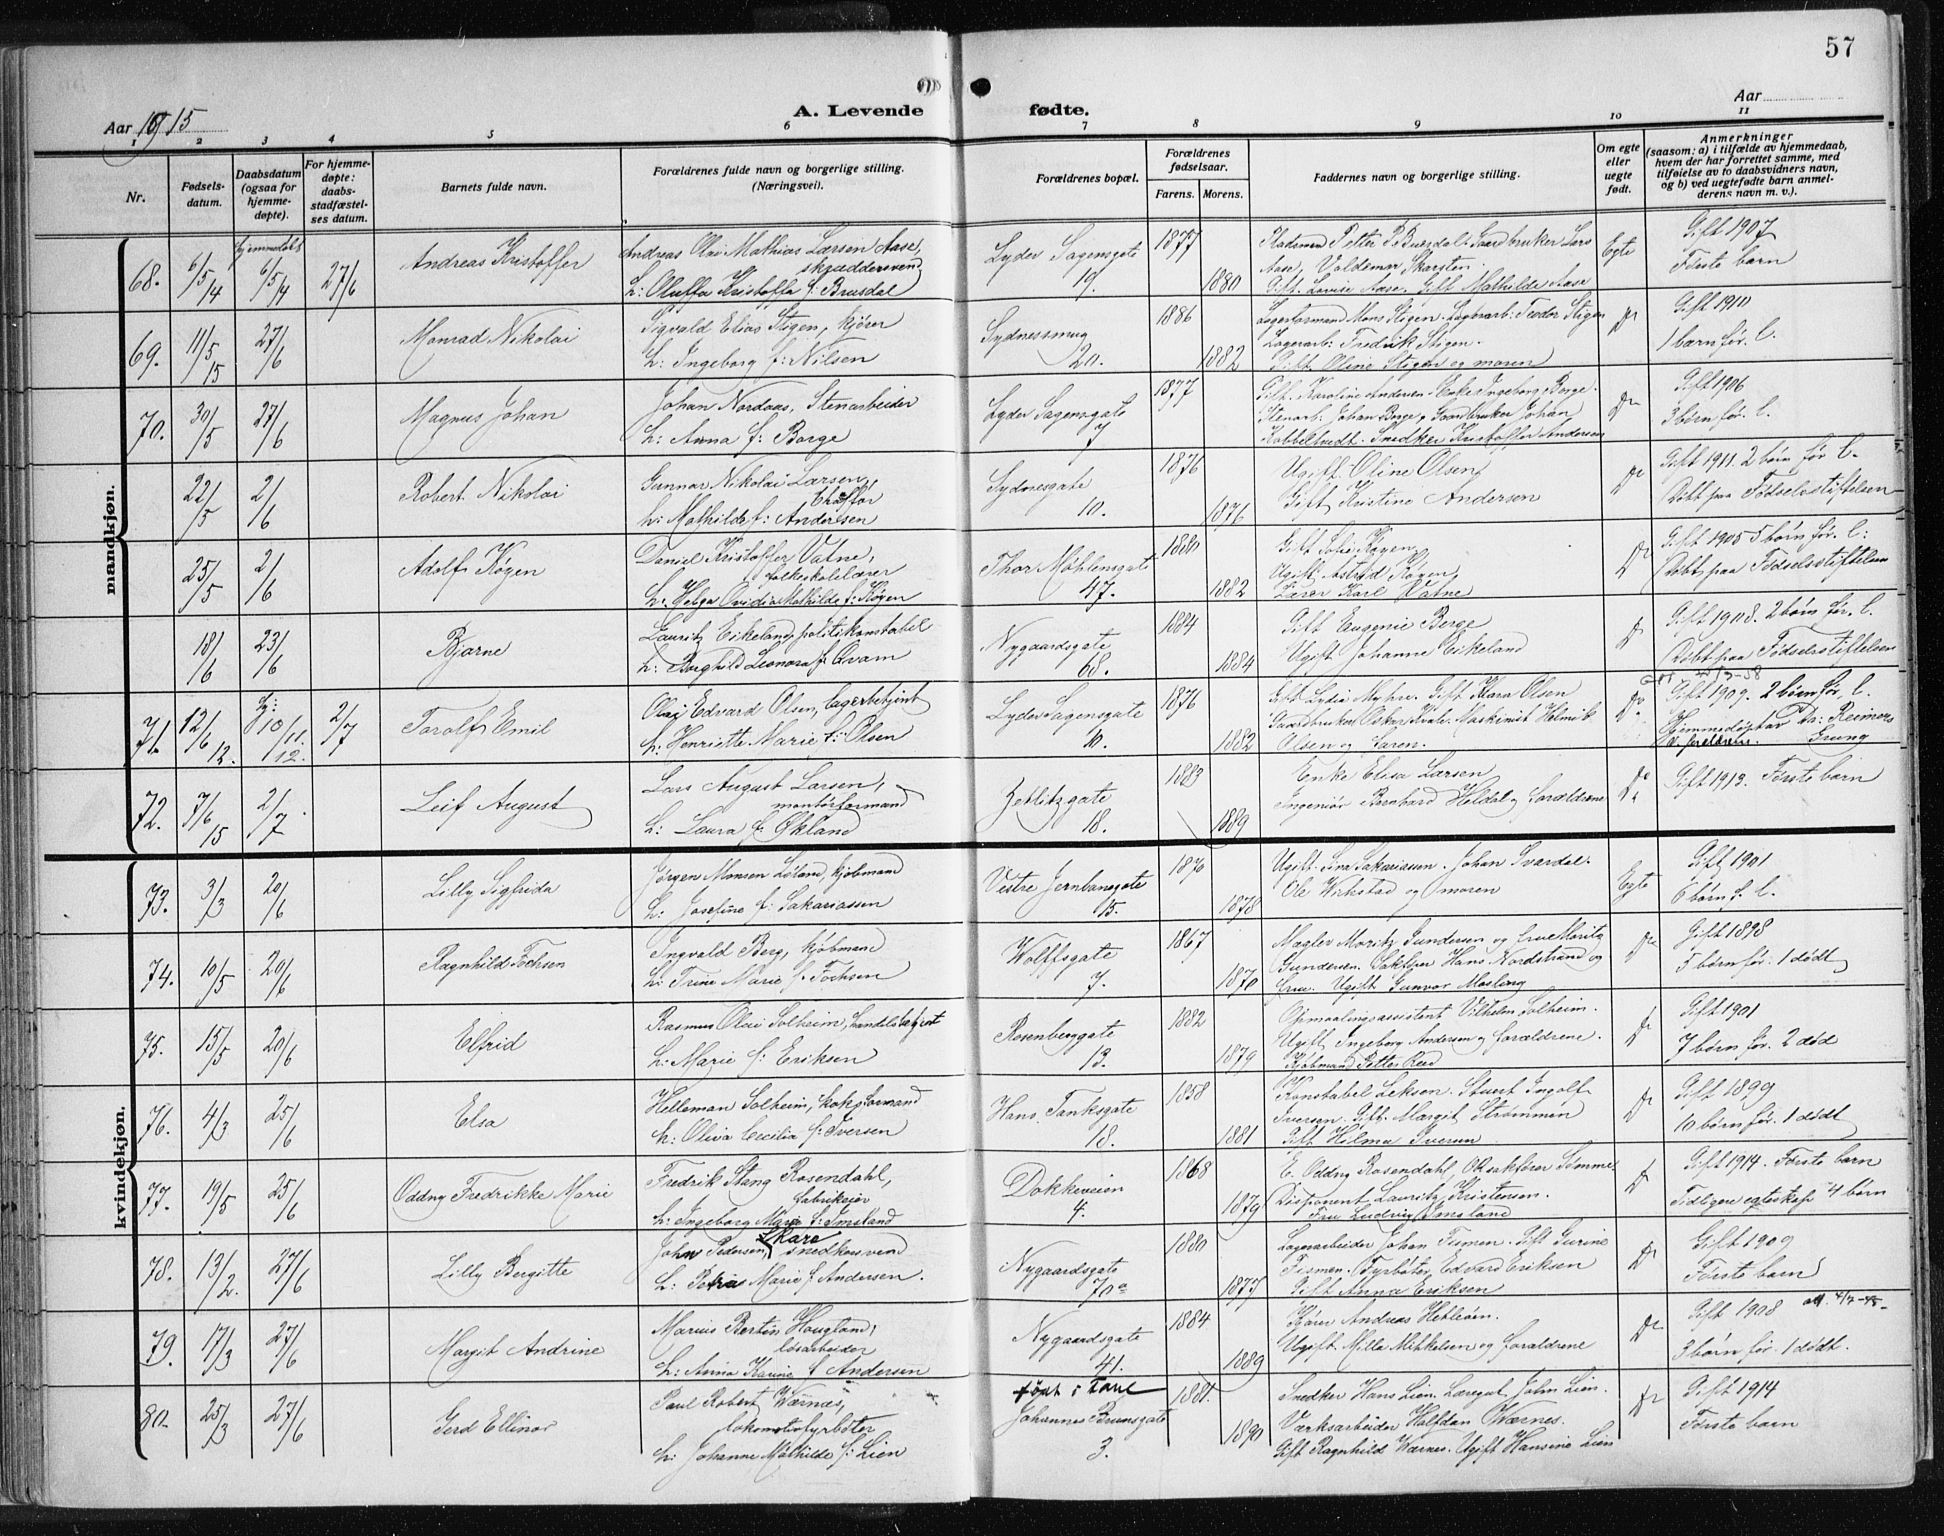 57
A. Levende fødte.
Aar 1915
Aar
1 2 3 4 5 6 7 8 9 10 11
Nr.
Fødsels-
datum.
Daabsdatum
(ogsaa for
hjemme-
døpte).
For hjemme-
døpte:
daabs-
stadfæstel-
ses datum.
Barnets fulde navn.
Forældrenes fulde navn og borgerlige stilling.
(Næringsvei).
Forældrenes bopæl.
Forældrenes
fødselsaar.
Farens. Morens.
Faddernes navn og borgerlige stilling.
Om egte
eller
uegte
født.
Anmerkninger
(saasom: a) i tilfælde av hjemmedaab,
hvem der har forrettet samme, med
tilføielse av to daabsvidners navn,
og b) ved uegtefødte barn anmel-
derens navn m. v.).
mandkjøn.
68. 6/5 14 hjemmedøbt 6/5 14 27/6 Andreas Kristoffer
Andreas Olai Mathias Larsen Aase,
skræddersvend
h: Oluffa Kristoffa f. Brusdal
Lyder Sagensgate
19.
1877 1880
Pladsmand Petter P. Brusdal. Gaardbruker Lars
Aase, Valdemar Skarsten.
Gift. Lovise Aase. Gift Mathilde Aase
Egte
Gift 1907
Første barn
69. 11/5 15 27/6 Monrad Nikolai
Sigvald Elias Stigen, kjører
h: Ingeborg f: Nilsen
Sydnessmug
20.
1886 1882
Lagerformand Mons Stigen. Lagerarb: Teodor Stigen
Lagerarb: Fredrik Stigen.
Gift. Oline Stigen og moren
Do
Gift 1910
1 barn før. l.
70. 30/5 27/6 Magnus Johan
Johan Nordaas, Stenarbeider
h: Anna f: Borge
Lyder Sagensgate
7
1877
Gift. Karoline Andersen. Enke Ingeborg Borge.
Stenarb. Johan Borge, Gaardbruker Johan
Kobbeltvedt. Snedker Kristoffer Andersen
Do
Gift 1906
3 børn før. l.
22/5 2/6 Robert Nikolai
Gunnar Nikolai Larsen,
Chaffør
h: Mathilde f: Andersen
Sydnesgate
10.
1876 1876
Ugift Oline Olsen,
Gift Kristine Andersen
Do
Gift 1911. 2 børn før l.
Døbt paa Fødselsstiftelsen
25/5 2/6 Adolf Køgen
Daniel Kristoffer Vatne,
folkeskolelærer
h: Helga Ovidia Mathilde f: Køgen
Thor Møhlensgate
47.
1880 1882
Gift Sofie Køgen,
Ugift Astrid Køgen,
Lærer Karl Vatne
Do
Gift 1905 5 børn før. l:
Døbt paa Fødselsstiftelsen
18/6 23/6 Bjarne
Lauritz Eikeland, politikonstabel
h: Borghild Leonora f. Qvam
Nygaardsgate
68.
1884 1884
Gift Eugenie Berge
Ugift Johanne Eikeland
Do
Gift 1908. 2 børn før. l.
Døbt paa Fødselsstiftelsen
71. 12/6 12. hj: 10/11 12. 2/7 Toralf Emil
Olaf Edvard Olsen, lagerbetjent
h. Henriette Marie f: Olsen
Lyder Sagensgate
10.
1876 1882
Gift Lydia Myhre. Gift Klara Olsen
Gaardbruker Oskar Kvale. Maskinist Helmik
Olsen og Faren.
Do
Gift 1909. 2 børn før. l.
Hjemmedøpt av Da: Reimers
Grung
72. 7/6 15 2/7 Leif August
Lars August Larsen,
montørformand
h: Laura f. Økland
Zetlitzgate
18.
1883 1889
Enke Elisa Larsen
Ingeniør Bernhard Heldal og Forældrene
Do
Gift 1913. Første barn
kvindekjøn.
73. 3/3 20/6 Lilly Sigfrida
Jørgen Monsen Løland, kjøbmand
h: Josefine f: Sakariassen
Vestre Jernbanegate
15.
1870 1878
Ugift. Lina Sakariassen. Johan Sværdal.
Ole Wikstad og moren
Egte
Gift 1901
6 børn f. l.
74. 10/5 20/6 Ragnhild Tochsen
Ingvald Berg, kjøbmand
h. Trine Marie f. Tochsen
Wolffsgate
7.
1867 1870
Mægler Moritz Gundersen og frue Moritz
Gundersen. Sakfører Hans Nordstrand og
frue. Ugift Gunvor Mosleng
Do
Gift 1898
5 børn før. 1 dødt
75. 15/5 20/6 Elfrid
Rasmus Olai Solheim, handelsagent
h: Marie f: Eriksen
Rosenberggate
13.
1882 1879
Opmaalingsassistent Vilhelm Solheim.
Ugift Ingeborg Andersen og forældrene.
Kjøbmand Petter Reed
Do
Gift 1901
7 børn før. 2 død
76. 4/3 25/6 Elsa
Helleman Solheim, kokformand
h: Oliva Cecilia f. Iversen
Hans Tanksgate
18.
1858 1881
Konstabel Leksen. Stuert Ingolf
Iversen. Gift. Margit Strømmen
Gift Hilma Iversen
Do
Gift 1899
10 børn før. 1 dødt
77. 19/5 25/6 Oddny Fredrikke Marie
Fredrik Stang Rosendahl,
fabrikeier
h: Ingeborg Marie f: Imsland
Dokkeveien
4.
1868 1879
E. Oddny Rosendahl, O.R.sakfører Sømme
Disponent Lauritz Kristensen.
Fru Ludvig Imsland
Do
Gift 1914. Første barn
Tidligere egteskap 4 børn
78. 13/2. 27/6 Lilly Bergitte
John Pedersen Skare snedkersvend
h. Petra Marie f Andersen.
Nygaardsgate
70a
1880 1877
Lagerarbeider Johan Tismen. Gift Gurine
Tismen. Fyrbøter Edvard Eriksen
Gift Anna Eriksen
Do
Gift 1909
Første barn
79. 17/3 27/6 Margit Andrine
Marius Bertin Haugland,
løsarbeider
h: Anna Karine f Andersen
Nygaardsgate
41.
1884 1889
Kjører Andreas Hetleøen.
Ugift. Milla Mikkelsen og forældrene
Do
Gift 1908 att. 4/7-45-
3 børn før. 1 dødt.
80. 25/3 27/6 Gerd Ellinor
Paul Robert Wærnes,
lokomotivfyrbøter
h. Johanne Mathilde f: Lien
født i Fane
Johannes Brunsgate
3.
1881. 1890
Snedker Hans Lien. Læregut John Lien.
Værksarbeider Halfdan Wærnes.
Gift Ragnhild Wærnes. Ugift Hansine Lien
Do
Gift 1914
Første barn